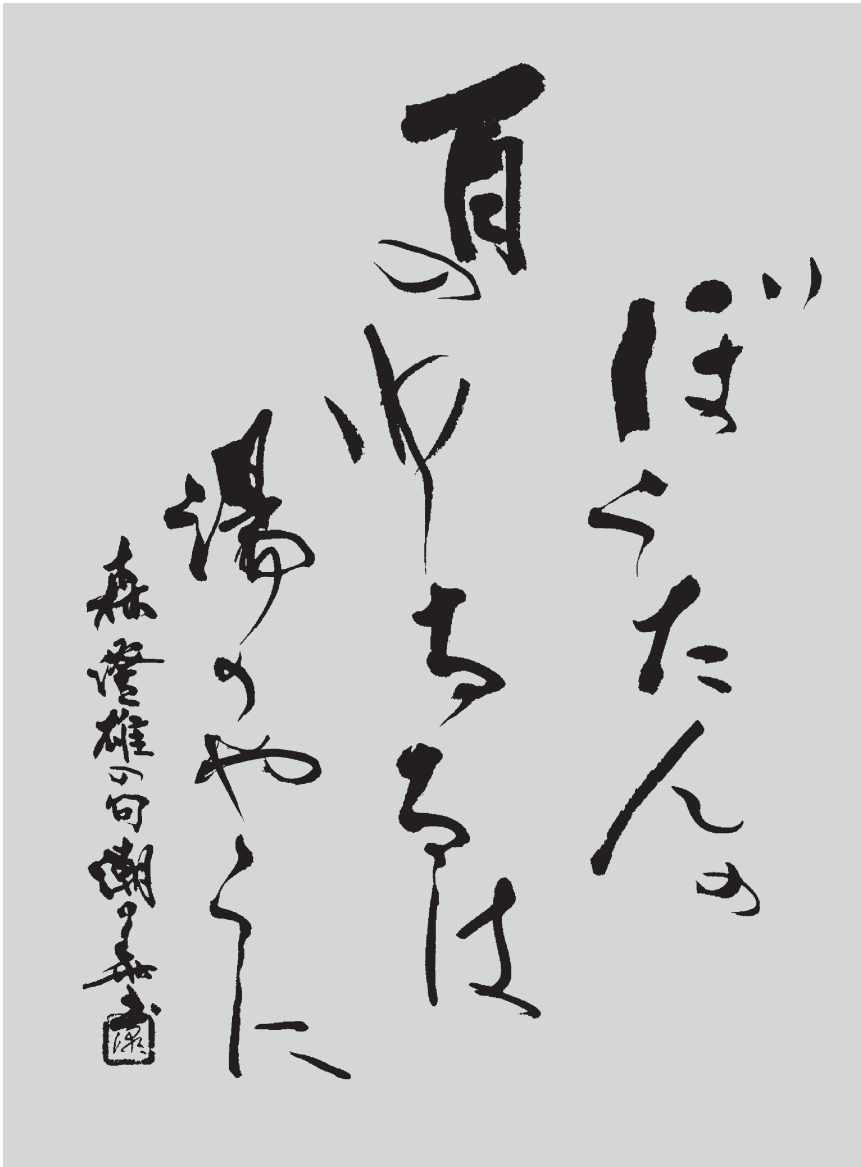 ぼうたんの
百のゆるるは
湯のやうに
森澄雄の句 潮